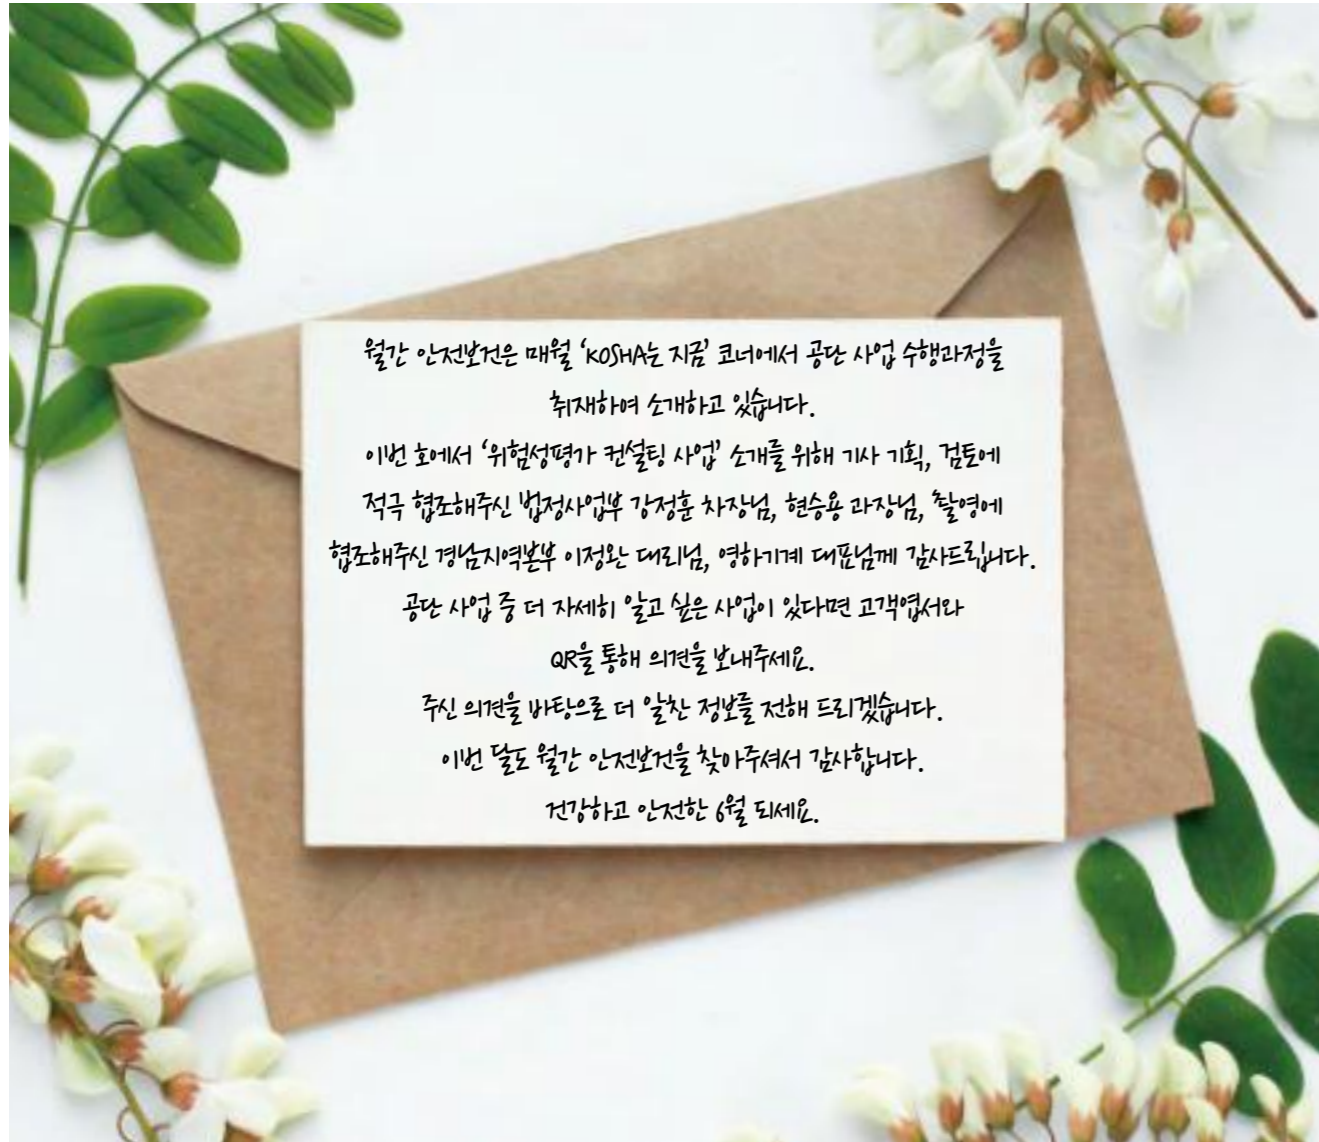 월간 안전보건은 매월 ‘KOSHA는 지금’ 코너에서 공단 사업 수행과정을
취재하여 소개하고 있습니다.
이번 호에서 ‘위험성평가 컨설팅 사업’ 소개를 위해 기사 기획, 검토에
적극 협조해주신 법정사업부 강정훈 차장님, 현승용 과장님, 촬영에
협조해주신 경남지역본부 이정완 대리님, 영하기계 대표님께 감사드립니다.
공단 사업 중 더 자세히 알고 싶은 사업이 있다면 고객엽서와
QR을 통해 의견을 보내주세요.
주신 의견을 바탕으로 더 알찬 정보를 전해 드리겠습니다.
이번 달도 월간 안전보건을 찾아주셔서 감사합니다.
건강하고 안전한 6월 되세요.